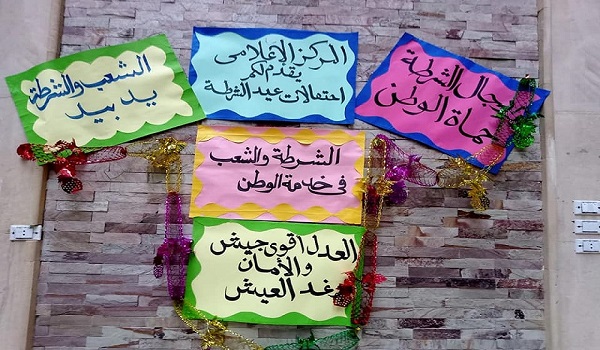 المركز الإعلامى
يقدم لكم
احتفالات عيد الشرطة
رجال الشرطة
حماة الوطن
الشعب والشرطة
يد بيد
الشرطة والشعب
فى خدمة الوطن
العدل اقوى جيش
والأمان
رغد العيش